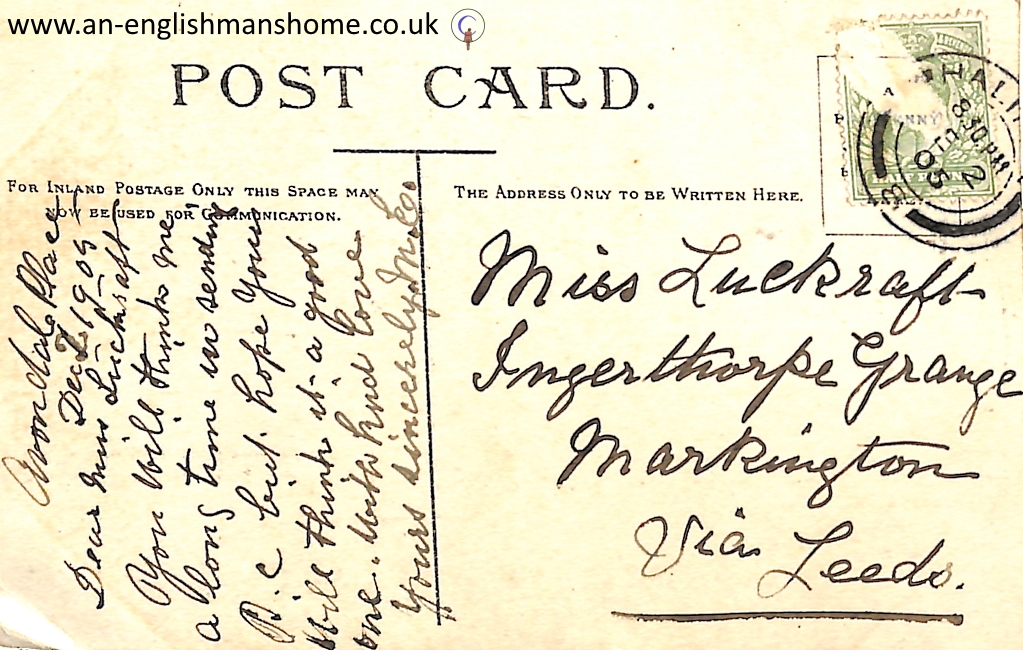 www.an-englishmanshome.co.uk
POST CARD.
FOR INLAND POSTAGE ONLY THIS SPACE MAY
NOW BE USED FOR COMMUNICATION.
THE ADDRESS ONLY TO BE WRITTEN HERE.
Avondale Place
Dec 1905
Dear Miss Luckraft
You will think me
a long time in sending
P. c but hope you
will think it a good
one. With kind love
Yours sincerely
Miss Luckraft
Ingerthorpe Grange
Markington
Via Leeds.
HALI
8.30 PM
2
05